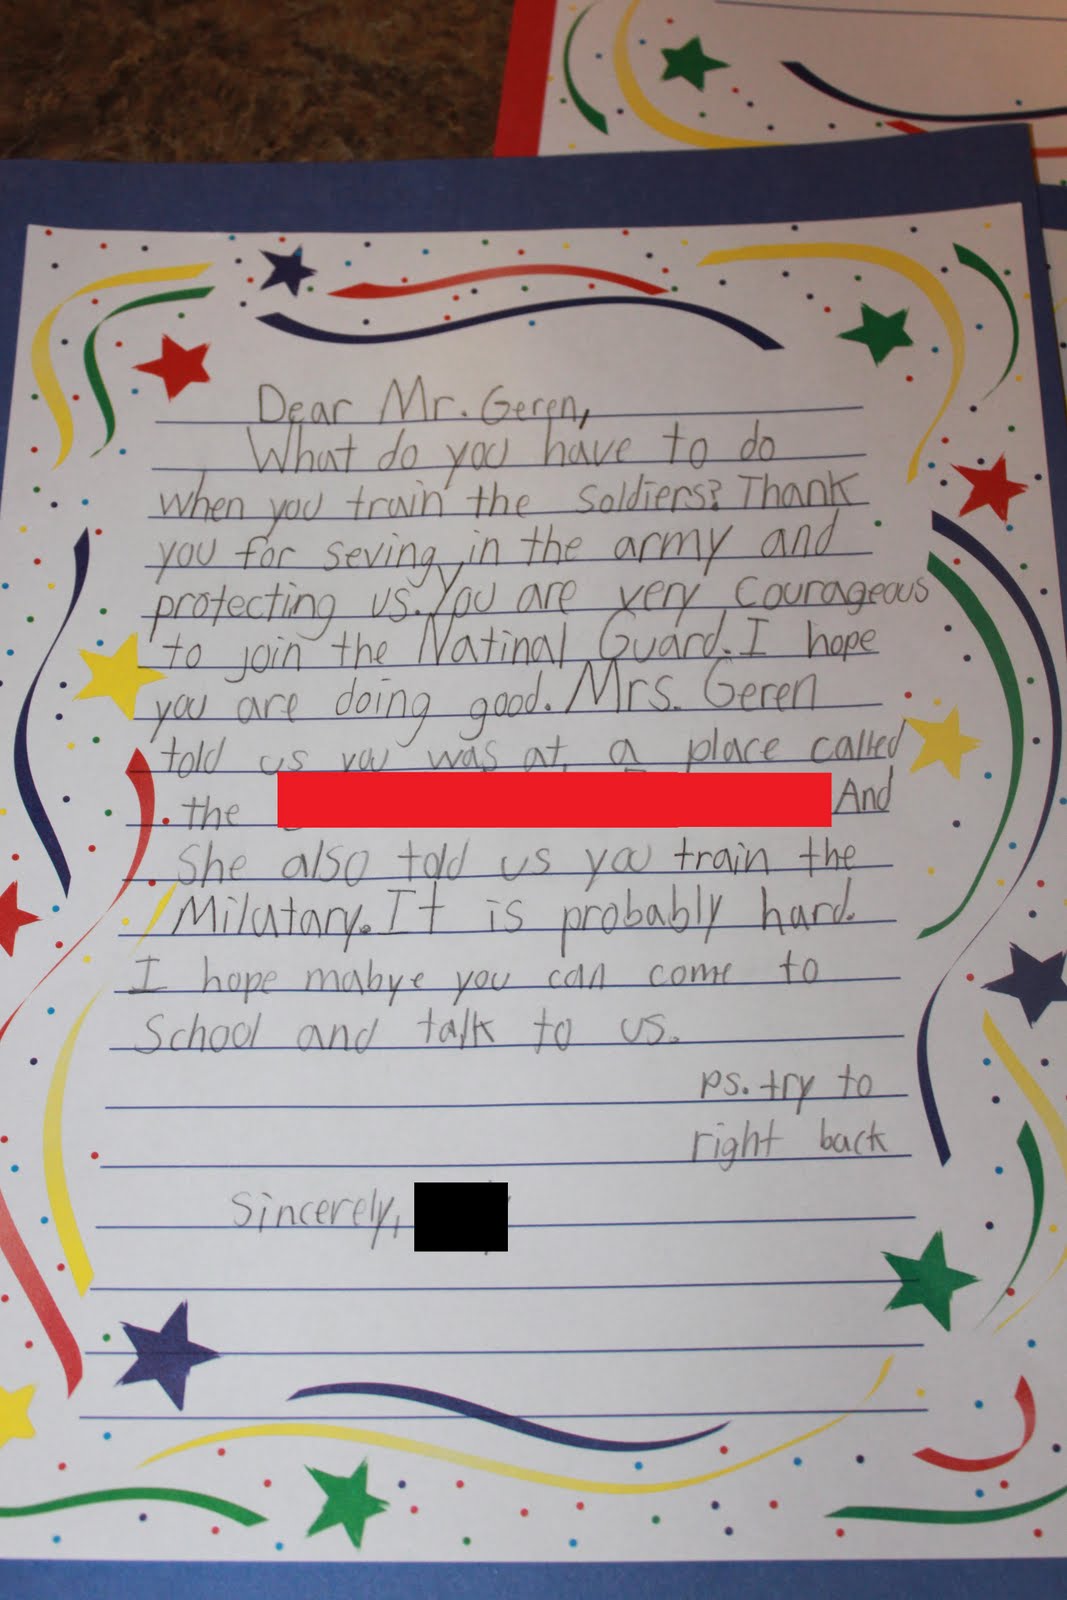 Dear Mr. Geren,
What do you have to do
when you train the soldiers? Thank
you for seving in the army and
protecting us. You are very courageous
to join the Natinal Guard. I hope
you are doing good. Mrs. Geren
told us you was at a place called
the And
She also told us you train the
Milutary. It is probably hard.
I hope mabye you can come to
School and talk to us.
ps. try to
right back
Sincerely,